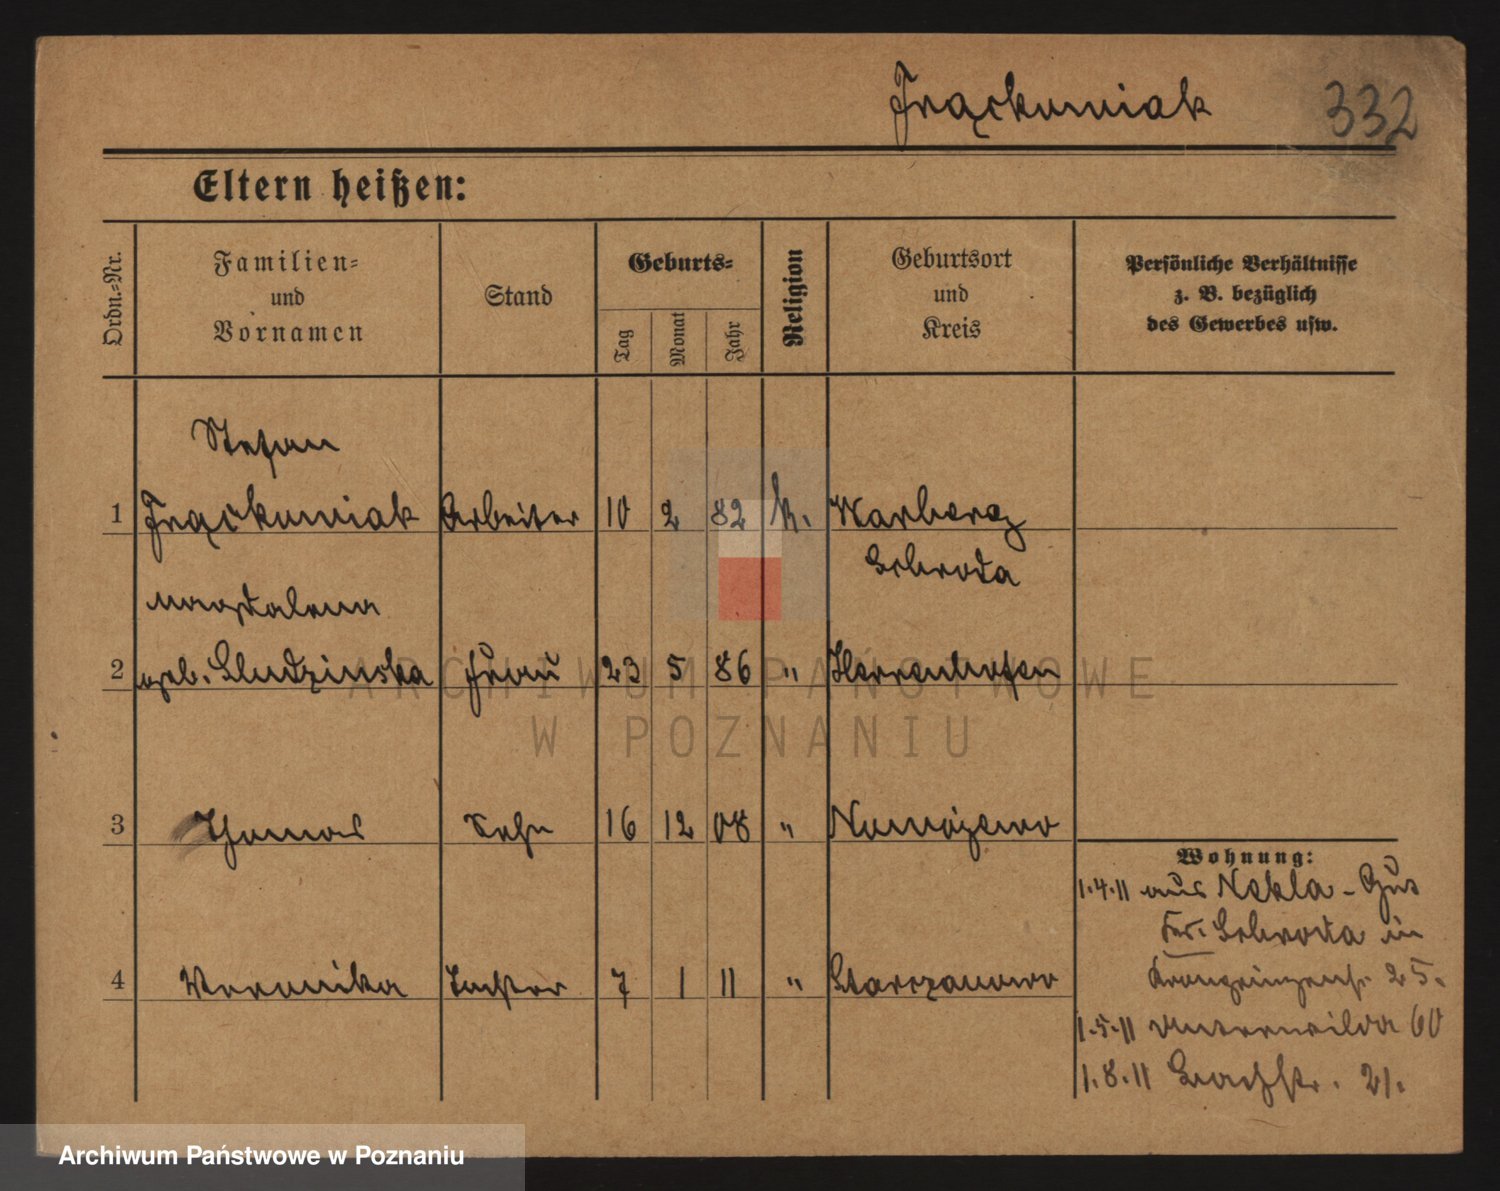 Frąckowiak 332
Eltern heißen:
Ordn.-Nr.
Familien-
und
Vornamen
Stand
Geburts-
Tag
Monat
Jahr
Religion
Geburtsort
und
Kreis
Persönliche Verhältnisse
z. B. bezüglich
des Gewerbes usw.
Stefan
1 Frąckowiak Arbeiter 10 2 82 k.
Schroda
Magdalena
2 geb. Sludzinska Frau 23 5 86 " Herrenhofen
3 Thomas Sohn 16 12 08 "
Wohnung:
1.4.11 aus Nekla - Gut
Krs. Schroda in
4 Veronika Tochter 7 1 11 " Starczanowo
Kronprinzenstr. 25.
1.5.11 Unterwilda 60
1.8.11 Bachstr. 21.
ARCHIWUM PAŃSTWOWE
W POZNANIU
Archiwum Państwowe w Poznaniu